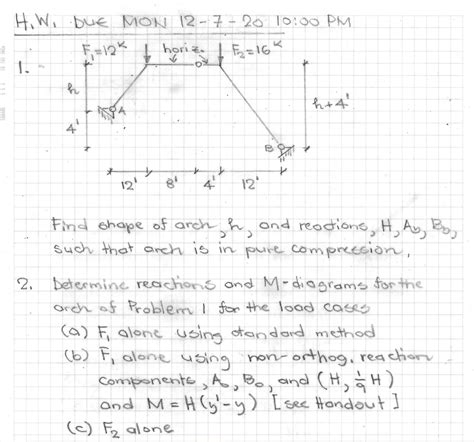 H.W. DUE MON 12-7-20 10:00 PM
F₁=12ᴷ horiz. F₂=16ᴷ
1.
h
A
h+4'
4'
B
12' 8' 4' 12'
Find shape of arch, h, and reactions, H, A₀, B₀,
such that arch is in pure compression.
2. Determine reactions and M-diagrams for the
arch of Problem 1 for the load cases
(a) F₁ alone using standard method
(b) F₁ alone using non-orthog. reaction
components, A₀, B₀, and (H, 1/9 H)
and M = H(y'-y) [see Handout]
(c) F₂ alone